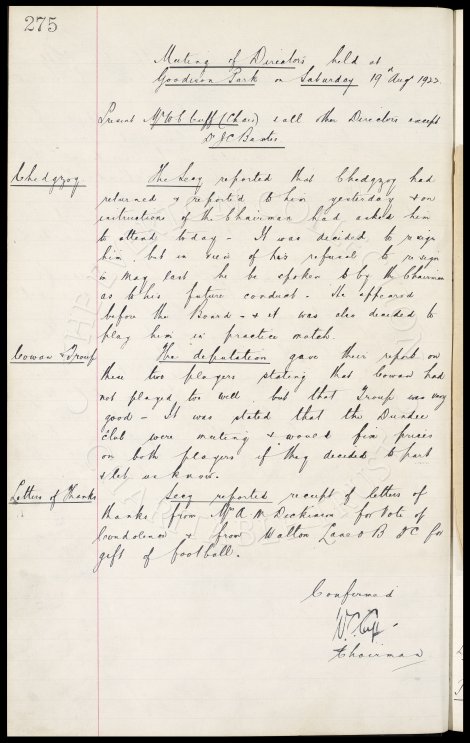 275
Meeting of Directors held at
Goodison Park on Saturday 19th Augt 1922.
Present Mr W C Cuff (Chair) & all other Directors except
Dr J C Baxter
Chedgzoy The Secy reported that Chedgzoy had
returned & report'd to him yesterday & on
instructions of the Chairman had asked him
to attend today - It was decided to resign
him but in view of his refusal to resign
in May last he be spoken to by the Chairman
as to his future conduct - He appeared
before the Board - & it was also decided to
play him in practice match.
Cowan & Troup The deputation gave their report on
these two players stating that Cowan had
not played too well but that Troup was very
good - It was stated that the Dundee
Club were meeting & would fix prices
on both players if they decided to part
& let us know.
Letters of Thanks Secy reported receipt of letters of
thanks from Mrs A M Dickinson for Vote of
Condolence & from Walton Lane O B FC for
gift of football.
Confirmed
W.C. Cuff
Chairman